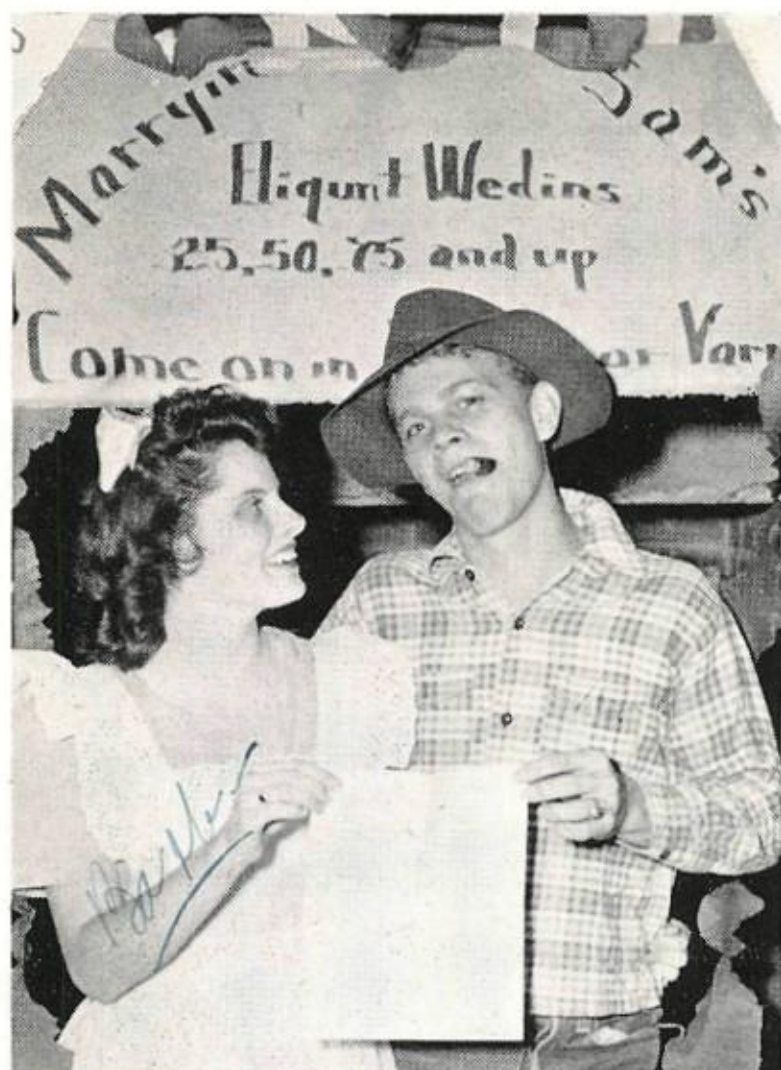 Marryin Sam's
Eliqunt Wedins
25, 50, 75 and up
Come on in